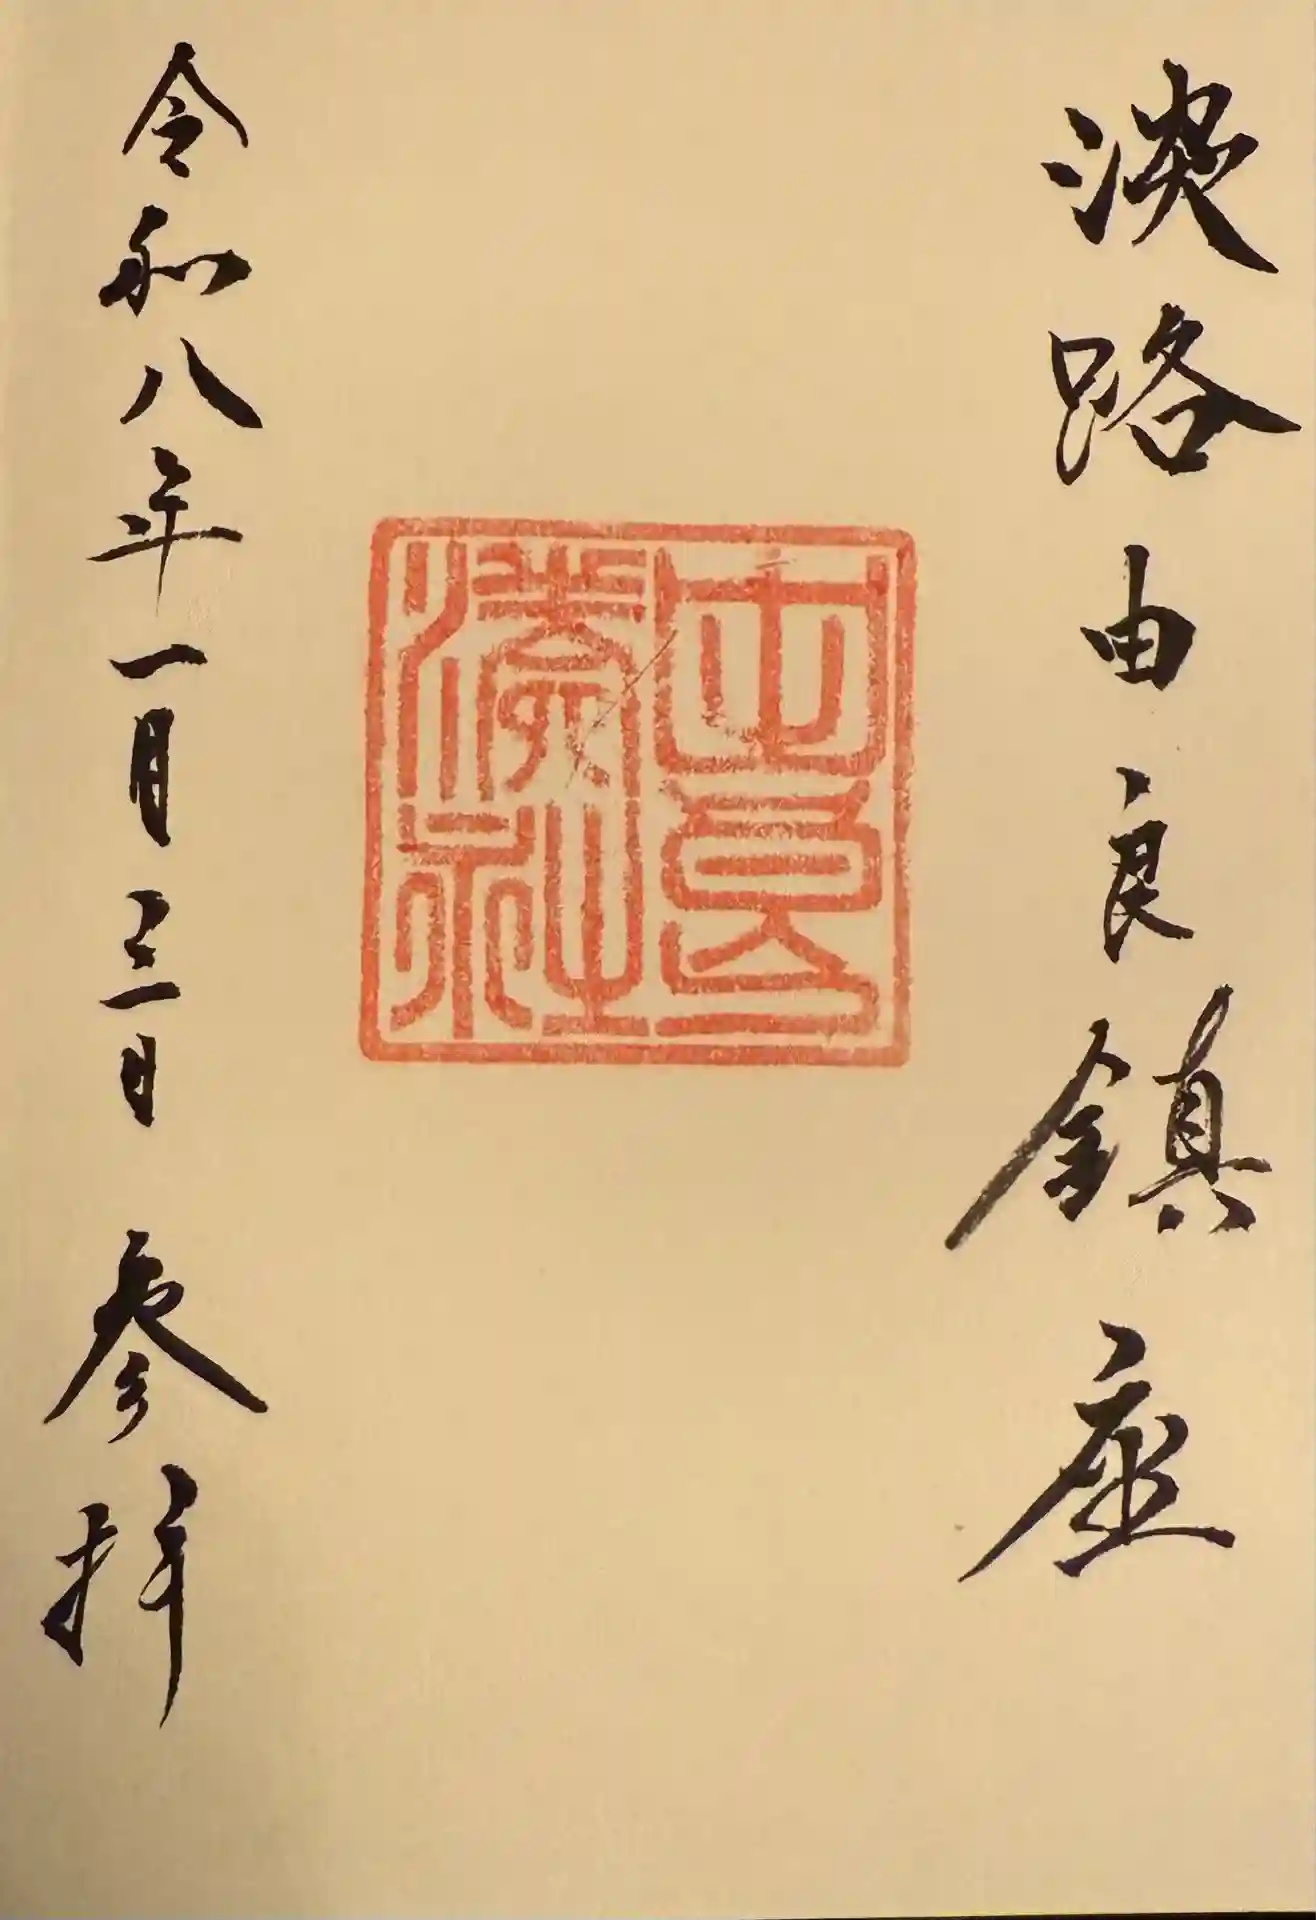 淡路由良鎮座
由良
湊社
令和八年一月三日参拝